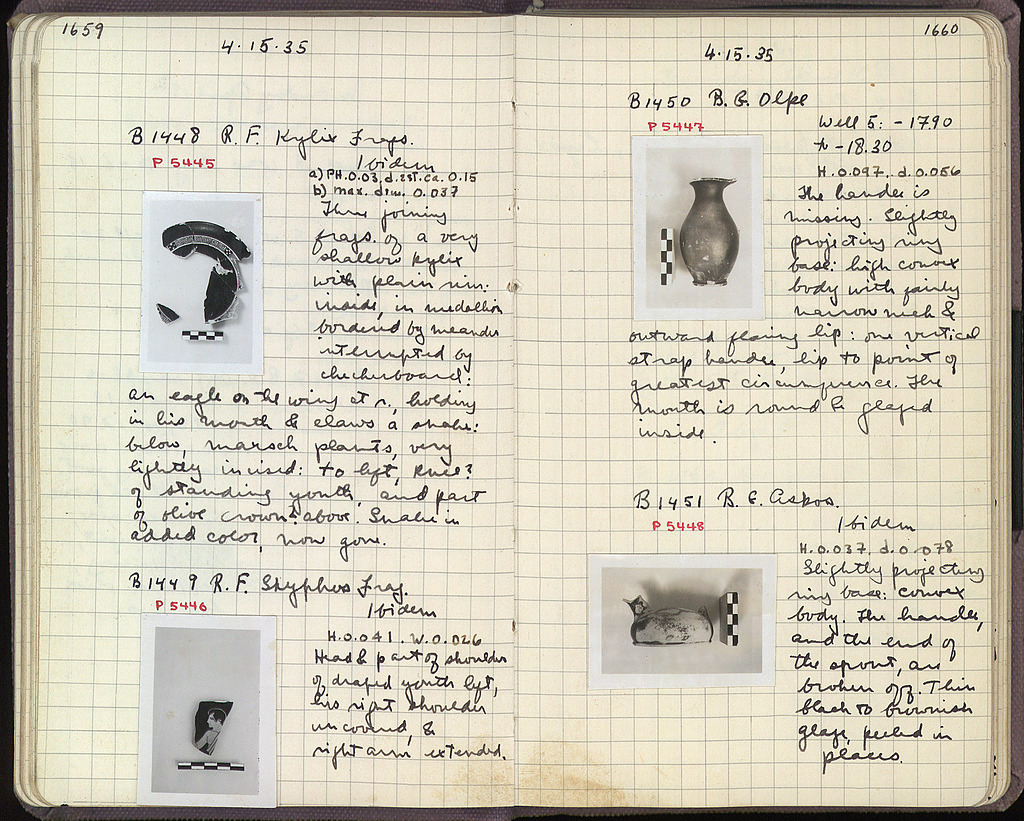 1659
4·15·35
B 1448 R. F. Kylix Frags.
P 5445
Ibidem
a) PH. 0.03, d. est. ca. 0.15
b) max. dim. 0.037
Three joining
frags. of a very
shallow kylix
with plain rim:
inside, in medallion
bordered by meander
interrupted by
checkerboard:
an eagle on the wing at r., holding
in his mouth & claws a snake:
below, marsch plants, very
lightly incised: to left, knee?
of standing youth, and part
of olive crown? above. Snake in
added color, now gone.
B 1449 R. F. Skyphos Frag.
P 5446
Ibidem
H. 0.041. W. 0.026
Head & part of shoulder
of draped youth left,
his right shoulder
uncovered, &
right arm extended.
1660
4·15·35
B 1450 B. G. Olpe
P 5447
Well 5: -17.90
to -18.30
H. 0.097. d. 0.056
The handle is
missing. Slightly
projecting ring
base: high convex
body with fairly
narrow neck &
outward flaring lip: one vertical
strap handle, lip to point of
greatest circumference. The
mouth is round & glazed
inside.
B 1451 B. G. Askos.
P 5448
Ibidem
H. 0.037, d. 0.078
Slightly projecting
ring base: convex
body. The handle,
and the end of
the spout, are
broken off. Thin
black to brownish
glaze, peeled in
places.